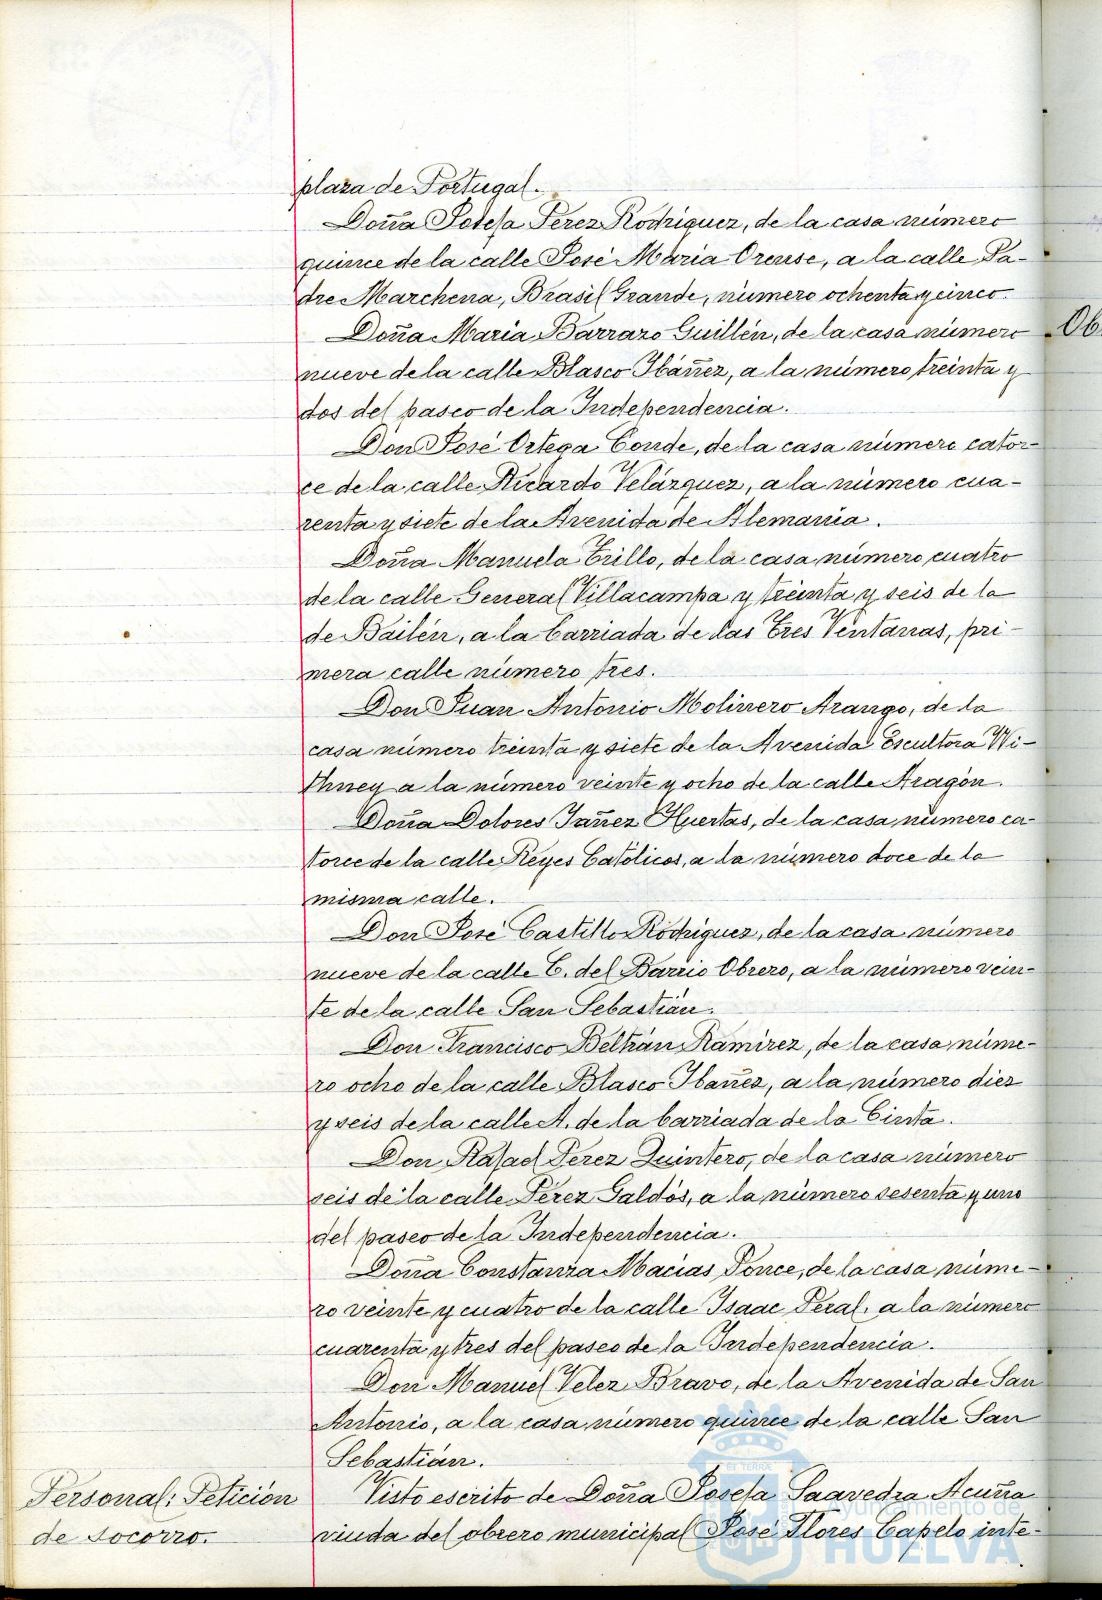 plaza de Portugal.
Doña Josefa Perez Rodriguez, de la casa número
quince de la calle José Maria Orense, a la calle Pa-
dre Marchena, Brasil Grande, número ochenta y cinco.
Doña Maria Barrazo Guillén, de la casa número
nueve de la calle Blasco Ibáñez, a la número treinta y
dos del paseo de la Independencia.
Don José Ortega Conde, de la casa número cator-
ce de la calle Ricardo Velázquez, a la número cua-
renta y siete de la Avenida de Alemania.
Doña Manuela Trillo, de la casa número cuatro
de la calle General Villacampa y treinta y seis de la
de Bailén, a la barriada de las Tres Ventanas, pri-
mera calle número tres.
Don Juan Antonio Molinero Arango, de la
casa número treinta y siete de la Avenida Escultora Wi-
thney a la número veinte y ocho de la calle Aragón.
Doña Dolores Iañez Huertas, de la casa número ca-
torce de la calle Reyes Católicos, a la número doce de la
misma calle.
Don José Castillo Rodriguez, de la casa número
nueve de la calle C. del Barrio Obrero, a la número vein-
te de la calle San Sebastián.
Don Francisco Beltrán Ramirez, de la casa núme-
ro ocho de la calle Blasco Ibañez, a la número diez
y seis de la calle A. de la barriada de la Cinta.
Don Rafael Perez Quintero, de la casa número
seis de la calle Pérez Galdós, a la número sesenta y uno
del paseo de la Independencia.
Doña Constanza Macías Ponce, de la casa núme-
ro veinte y cuatro de la calle Isaac Peral, a la número
cuarenta y tres del paseo de la Independencia.
Don Manuel Velez Bravo, de la Avenida de San
Antonio, a la casa número quince de la calle San
Sebastián.
Personal: Petición
de socorro.
Visto escrito de Doña Josefa Saavedra Acuña
viuda del obrero municipal José Flores Capelo inte-
Ob
Ayuntamiento de
HUELVA